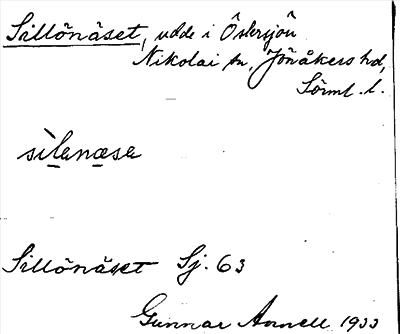 Sillönäset, udde i Östersjön
Nikolai sn, Jönåkers hd,
Sörml. l.
sìlenæse
Sillönäset Sj. 63
Gunnar Annell 1933